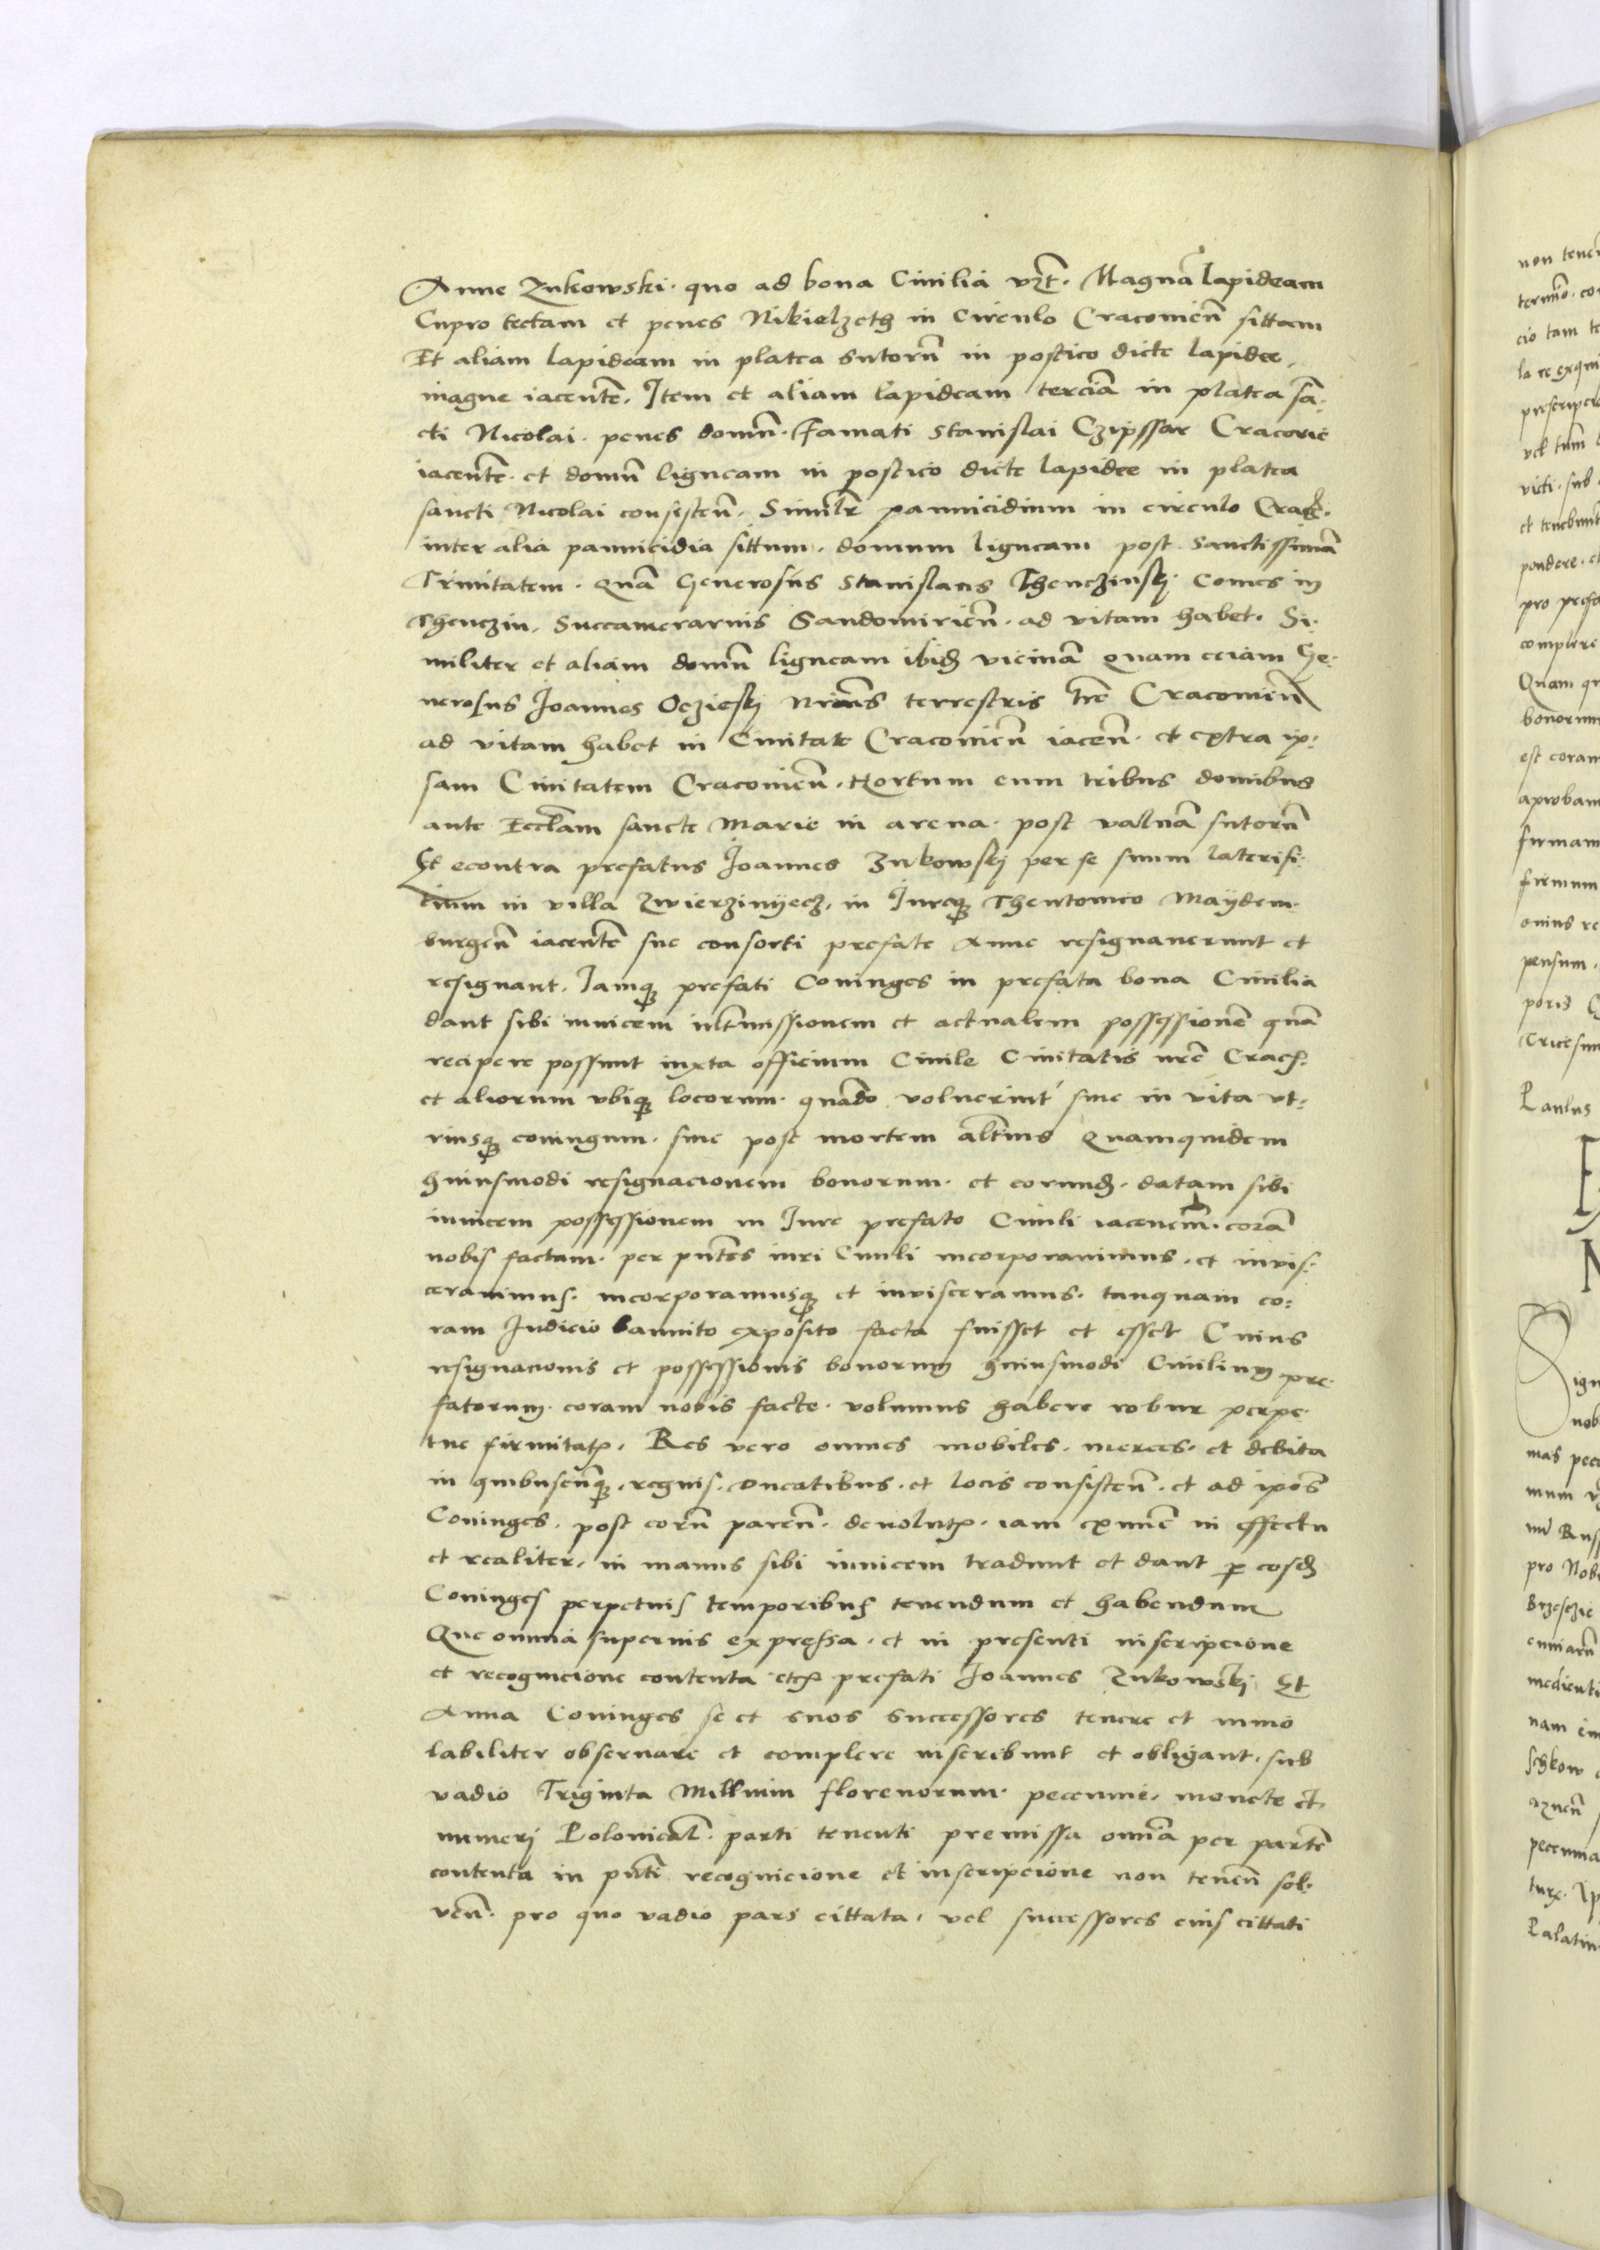 Anne Zukowski· quo ad bona Ciuilia vzt̄· Magnā lapideam
Cupro tectam et penes Nikielzeth in Circulo Cracouien̄ sittam
Et aliam lapideam in platea sutorū in postico dicte lapidee,
magne iacentē, Item et aliam lapideam terciā in platea sā·
cti Nicolai· penes domū· famati Stanislai Czipssar Cracouie
iacentē· et domū ligneam in postico dicte lapidee in platea
sancti Nicolai consisten̄· Similr̄ pannicidium in circulo Crac̄·
inter alia pannicidia sittum· domum ligneam post sanctissimā
Trinitatem· Quā Generosus Stanislaus Thenczinskj· Comes in
Thenczin, Succamerarius Sandomirien̄· ad vitam habet· Si·
militer et aliam domū ligneam ibidē vicinā Quam eciam Ge·
nerosus Joannes Oczieskj terrestris tr̄e Cracouien̄
ad vitam habet in Ciuitate Cracouien̄ iacen̄· et extra ip:
sam Ciuitatem Cracouien̄· Hortum cum tribus domibus
ante Eccl̄am sancte Marie in arena· post valuā sutorū
Et econtra prefatus Joannes Zukowskj per se suum laterifi·
cium in villa Zwierzinijecz, in Jureq₃ Theutonico Maydem·
burgen̄ iacentē sue consorti prefate Anne resignauerunt et
resignant, Jamq₃ prefati Coniuges in prefata bona Ciuilia
dant sibi inuicem intīmissionem et actualem possessionē quā
recipere possunt iuxta officium Ciuile Ciuitatis nr̄e Crac̄·
et aliorum vbiq₃ locorum· quādo voluerint siue in vita vt:
riusq₃ coniugum· siue post mortem altīus Quamquidem
huiusmodi resignacionem bonorum· et eorundē· datam sibi
inuicem possessionem in Jure prefato Ciuili iacencm̄· corā
nobis factam· per pn̄tes iuri Ciuili incorporauimus· et invis:
cerauimus· incorporamusq₃ et invisceramus· tanquam co:
ram Judicio bannito exposito facta fuisset et esset Cuius
resignacionis et possessionis bonorum huiusmodi Ciuilium pre·
fatorum· coram nobis facte· volumus habere robur perpe·
tue firmitatꝭ, Res vero omnes mobiles· merces· et debita
in quibuscunq₃· regnis· Ducatibus· et locis consisten̄· et ad ip̄os
Coniuges· post eorū paren̄· deuolutꝭ· iam ex nunc in effectu
et realiter, in manus sibi inuicem tradunt et dant ꝑ eosdē
Coniuges perpetuis temporibus tenendum et habendum
Que omnia superius expressa· et in presenti inscripcione
et recognicione contenta prefati Joannes Zukowskj Et
Anna Coniuges se et suos successores tenere et inuio
labiliter obseruare et complere inscribunt et obligant, sub
vadio Triginta Millium florenorum· pecunie, monete et
numerj Polonical̄· parti tenenti premissa omīa per partē
contenta in pn̄ti recognicione et inscripcione non tenen̄ sol·
uen̄· pro quo vadio pars cittata, vel successores eius cittati